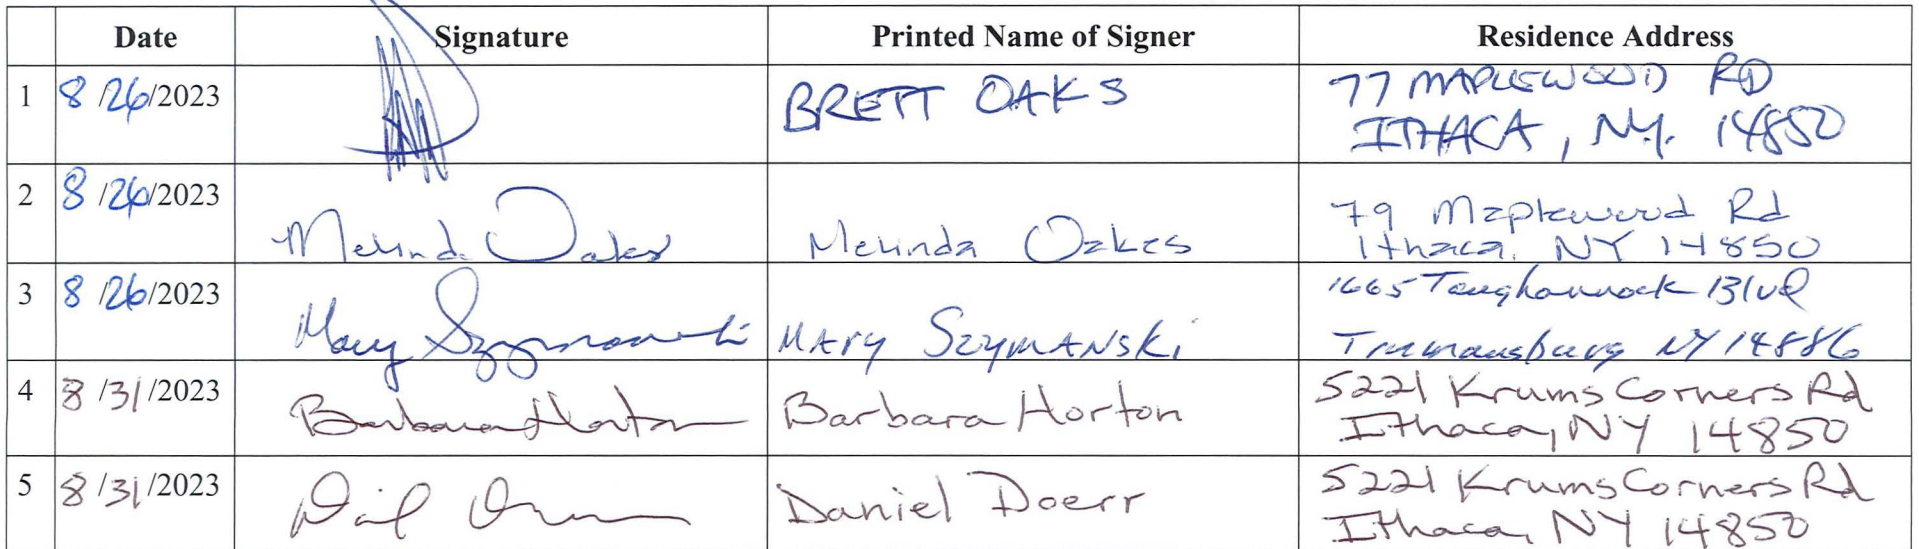 Date Signature Printed Name of Signer Residence Address
1 8/26/2023 BRETT OAKS 77 MAPLEWOOD RD
ITHACA, N.Y. 14850
2 8/26/2023 Melinda Oakes Melinda Oakes 79 Maplewood Rd
Ithaca, NY 14850
3 8/26/2023 Mary Szymanski MARY SZYMANSKi 1665 Taughannock Blvd
Trumansburg NY 14886
4 8/31/2023 Barbara Horton Barbara Horton 5221 Krums Corners Rd
Ithaca, NY 14850
5 8/31/2023 Daniel Doerr 5221 Krums Corners Rd
Ithaca, NY 14850